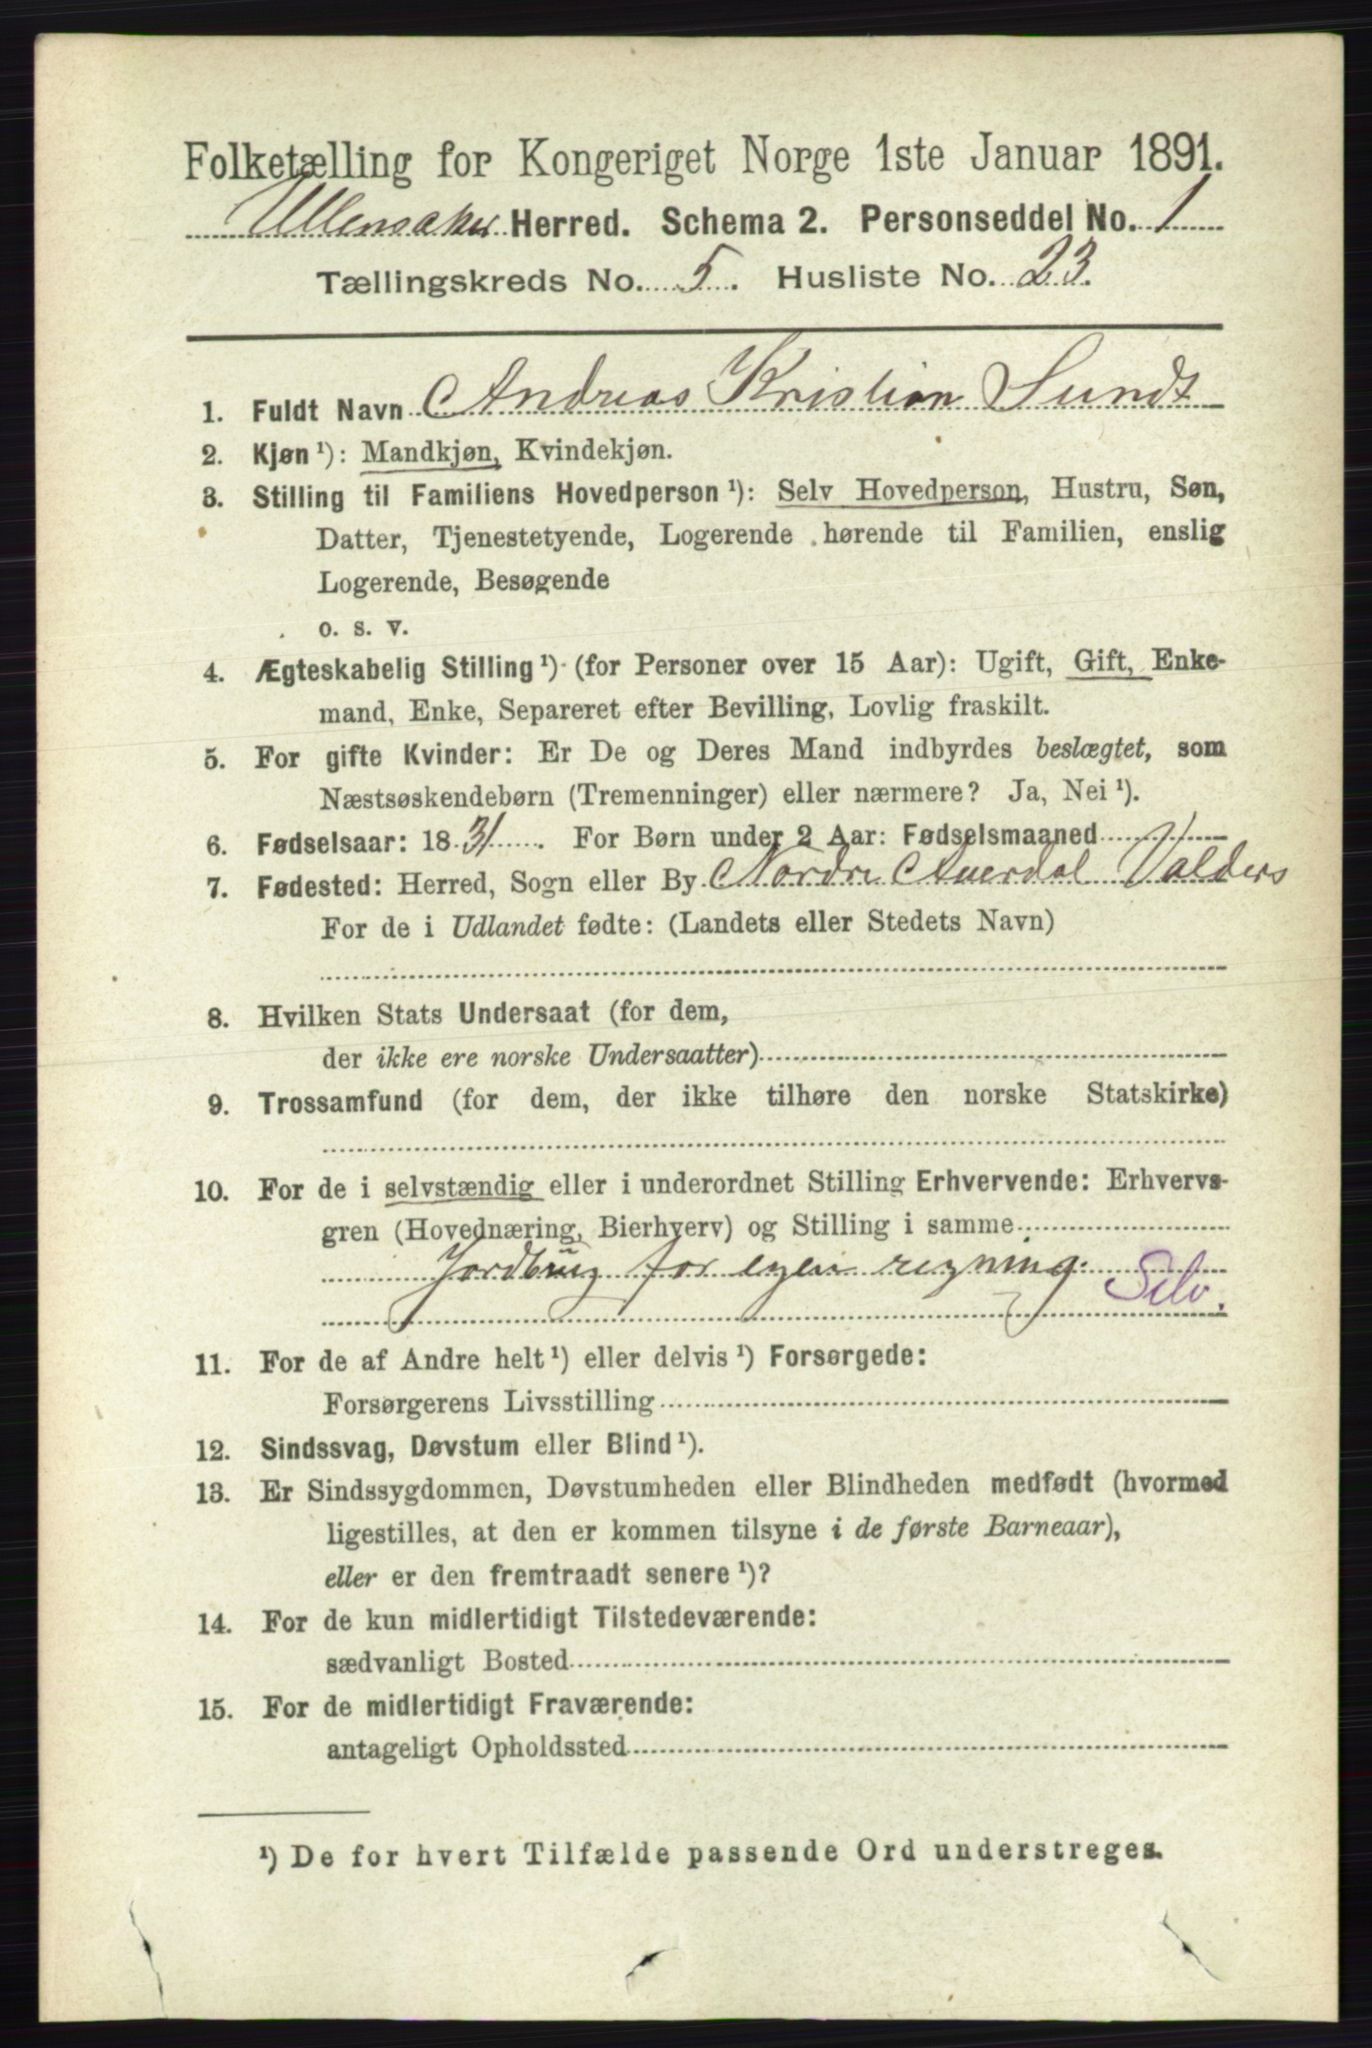 Folketælling for Kongeriget Norge 1ste Januar 1891.
Ullensaker Herred. Schema 2. Personseddel No. 1
Tællingskreds No. 5. Husliste No. 23.
1. Fuldt Navn Andreas Kristian Sundt
2. Kjøn ¹): Mandkjøn, Kvindekjøn.
3. Stilling til Familiens Hovedperson ¹): Selv Hovedperson, Hustru, Søn,
Datter, Tjenestetyende, Logerende hørende til Familien, enslig
Logerende, Besøgende
o. s. v.
4. Ægteskabelig Stilling ¹) (for Personer over 15 Aar): Ugift, Gift, Enke-
mand, Enke, Separeret efter Bevilling, Lovlig fraskilt.
5. For gifte Kvinder: Er De og Deres Mand indbyrdes beslægtet, som
Næstsøskendebørn (Tremenninger) eller nærmere? Ja, Nei ¹).
6. Fødselsaar: 1831. For Børn under 2 Aar: Fødselsmaaned
7. Fødested: Herred, Sogn eller By Nordre Auerdal Valders
For de i Udlandet fødte: (Landets eller Stedets Navn)
8. Hvilken Stats Undersaat (for dem,
der ikke ere norske Undersaatter)
9. Trossamfund (for dem, der ikke tilhøre den norske Statskirke)
10. For de i selvstændig eller i underordnet Stilling Erhvervende: Erhvervs-
gren (Hovednæring, Bierhverv) og Stilling i samme
Jordbrug for egen regning. Selv.
11. For de af Andre helt ¹) eller delvis ¹) Forsørgede:
Forsørgerens Livsstilling
12. Sindssvag, Døvstum eller Blind ¹).
13. Er Sindssygdommen, Døvstumheden eller Blindheden medfødt (hvormed
ligestilles, at den er kommen tilsyne i de første Barneaar),
eller er den fremtraadt senere ¹)?
14. For de kun midlertidigt Tilstedeværende:
sædvanligt Bosted
15. For de midlertidigt Fraværende:
antageligt Opholdssted
¹) De for hvert Tilfælde passende Ord understreges.